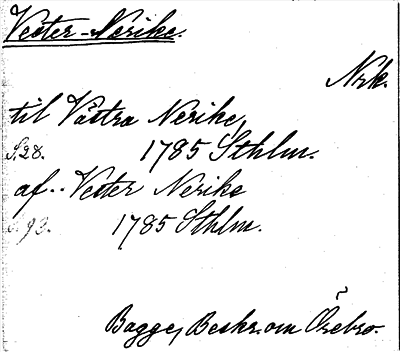 Vester-Nerike.
Nrk.
til Västra Nerike,
S.28. 1785 Sthlm.
af.. Vester Nerike
S. 93. 1785 Sthlm.
Bagge, Beskr. om Örebro.